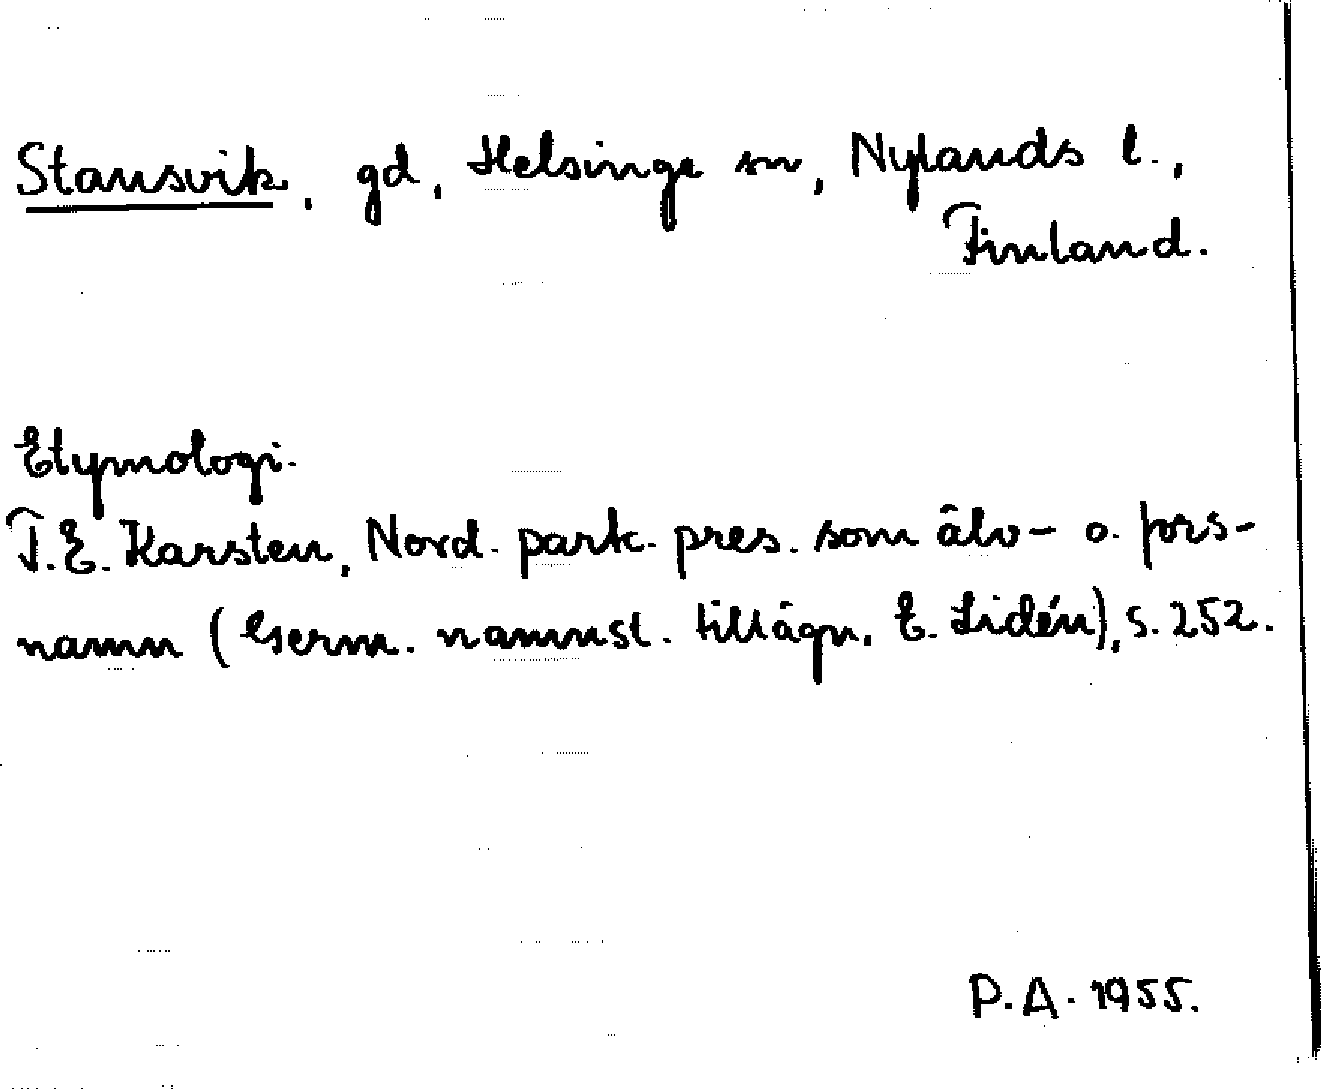 Stansvik, gd, Helsinge sn, Nylands l.,
Finland.
Etymologi.
T.E. Karsten, Nord. partc. pres. som älv- o. fors-
namn (Germ. namnst. tillägn. E. Lidén), s. 252.
P.A. 1955.